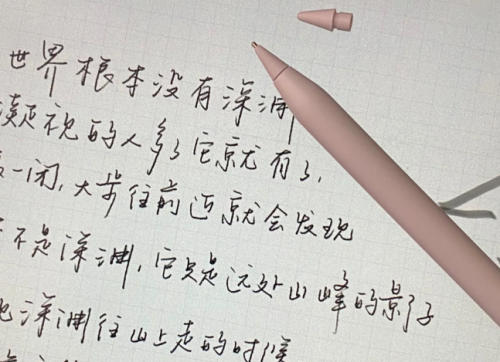 世界根本没有深渊
凝视的人多了它就有了,
一闭,大步往前迈就会发现
不是深渊,它只是远处山峰的影子
深渊往山上走的时候